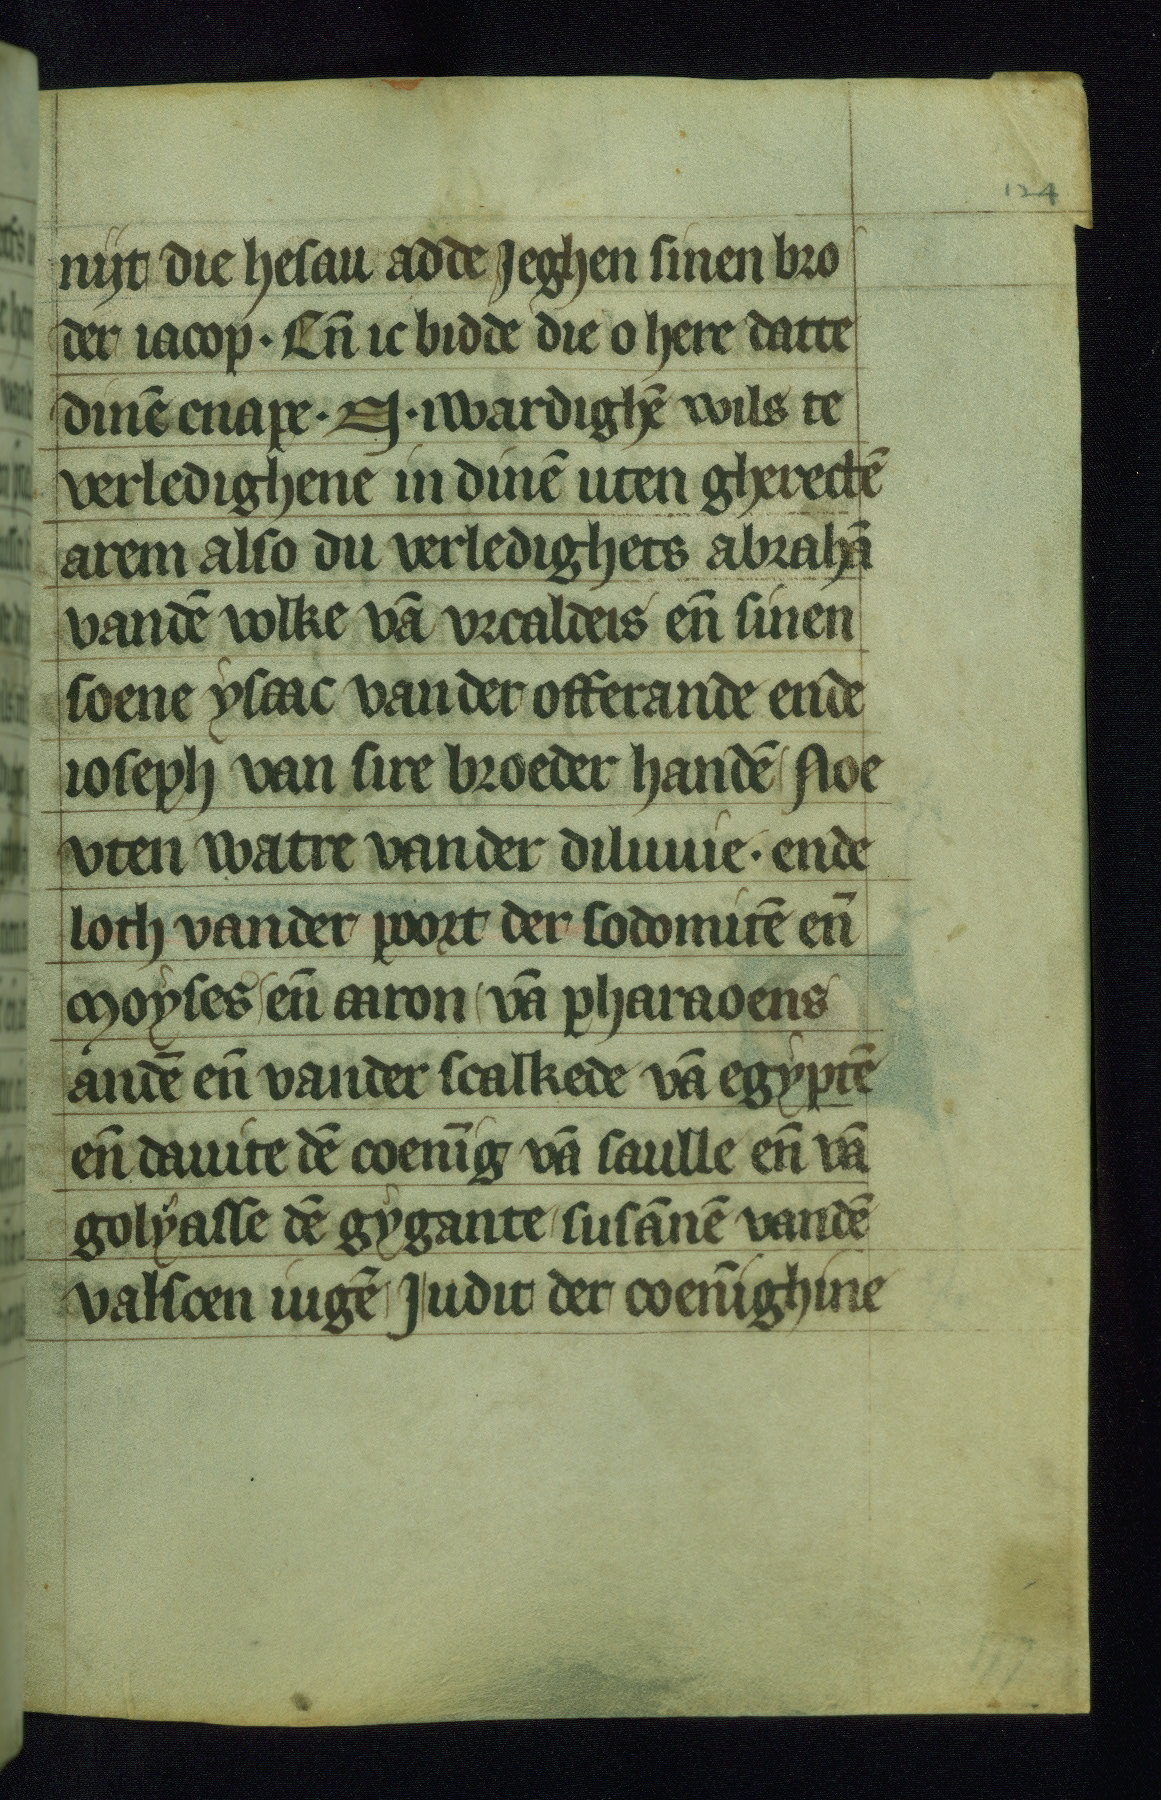 124
nijt die hesau adde Jeghen sinen bro
der iacop· Eñ ic bidde die o here datte
dinē cnape· N· iwardighē wils te
verledighene in dinē uten gherectē
arem also du verledighets abrahā
vandē volke vā vrcaldeis eñ sinen
soene ysaac vander offerande ende
ioseph van sire broeder handē Noe
vten watre vander diluuie· ende
loth vander poort der sodomitē eñ
Moyses eñ aaron vā pharaoens
andē eñ vander scalkede vā egyptē
eñ dauite dē coenīg vā saulle eñ vā
golyasse dē gygante susānē vandē
valscen iugē Judit der coenīghine